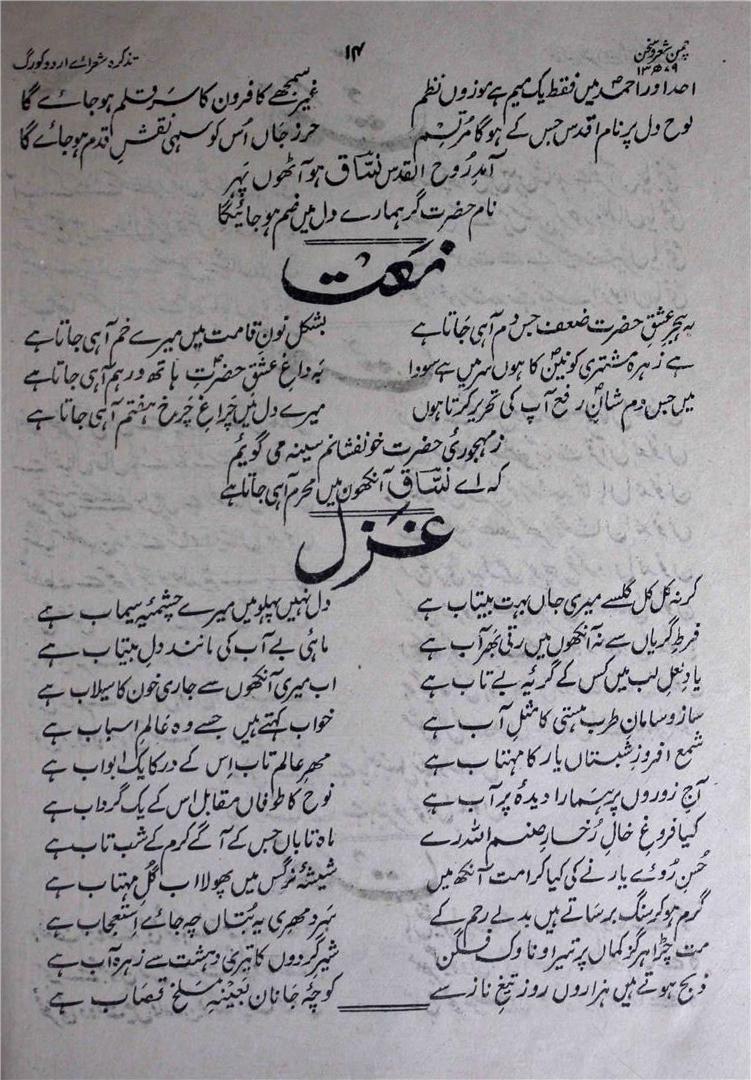 چمن شعر و سخن
۱۳۵۷۹
۱۴
تذکرہ شعرائے اردو کورگ
احد اور احمد میں فقط یک میم ہے موزوں نظم غیر سمجھے کافرون کا سر قلم ہو جائے گا
لوح دل پر نام اقدس جس کے ہوگا مرتسم حرز جاں اُس کو سہی نقش قدم ہو جائے گا
آمدِ رُوح القدس نسّاق ہو آٹھوں پہر
نام حضرت گر ہمارے دل میں ضم ہو جائیگا
نعت
بہ ہجرِ عشق حضرت ضعف جس دم آہی جاتا ہے بشکل نون قامت میں میرے خم آہی جاتا ہے
ہے زہرہ مشتری کونین کا ہوں سر میں ہے سودا بہ داغِ عشق حضرت ہاتھ درہم آہی جاتا ہے
میں جس دم شانِ رفع آپ کی تحریر کرتا ہوں میرے دل میں چراغِ چرخ ہفتم آہی جاتا ہے
زمہجوریٔ حضرت خونفشانم سینہ می گویٔم
کہ اے نسّاق آنکھوں میں محرم آہی جاتا ہے
غزل
کر نہ کل کل گلسے میری جاں بہت بیتاب ہے دل نہیں پہلو میں میرے چشمۂ سیماب ہے
فرطِ گریاں سے نہ آنکھوں میں رقی بھر آب ہے ماہیٔ بے آب کی مانند دل بیتاب ہے
یاد لعل لب میں کس کے گرئیہ بے تاب ہے اب میری آنکھوں سے جاری خون کا سیلاب ہے
ساز و سامان طرب ہستی کا مثل آب ہے خواب کہتے ہیں جسے وہ عالمِ اسباب ہے
شمع افروزِ شبستاں یار کا مہتاب ہے مہر عالم تاب اِس کے در کا یک ابواب ہے
آج زوروں پر ہمارا دیدۂ پر آب ہے نوح کا طوفاں مقابل اس کے یک گرداب ہے
کیا فروغِ خالِ رُخسارِ صنم اللہ رے ماہ تاباں جس کے آگے کرم کے شب تاب ہے
حُسن رُوئے یار نے کی کیا کرامت آنکھ میں شیشۂ نرگس میں پھولا اب گلِ مہتاب ہے
گرم ہو کر سنگ برساتے ہیں بدلے رحم کے سرد مہری یہ بُتاں چہ جائے اِستعجاب ہے
مت چڑا ہرگز کماں پر تیر او ناوک فگن شیر گردوں کا تیری دہشت سے زہرہ آب ہے
ذبح ہوتے ہیں ہزاروں روز تیغِ ناز سے کوچۂ جانان بعینہِ مسلخ قصاب ہے